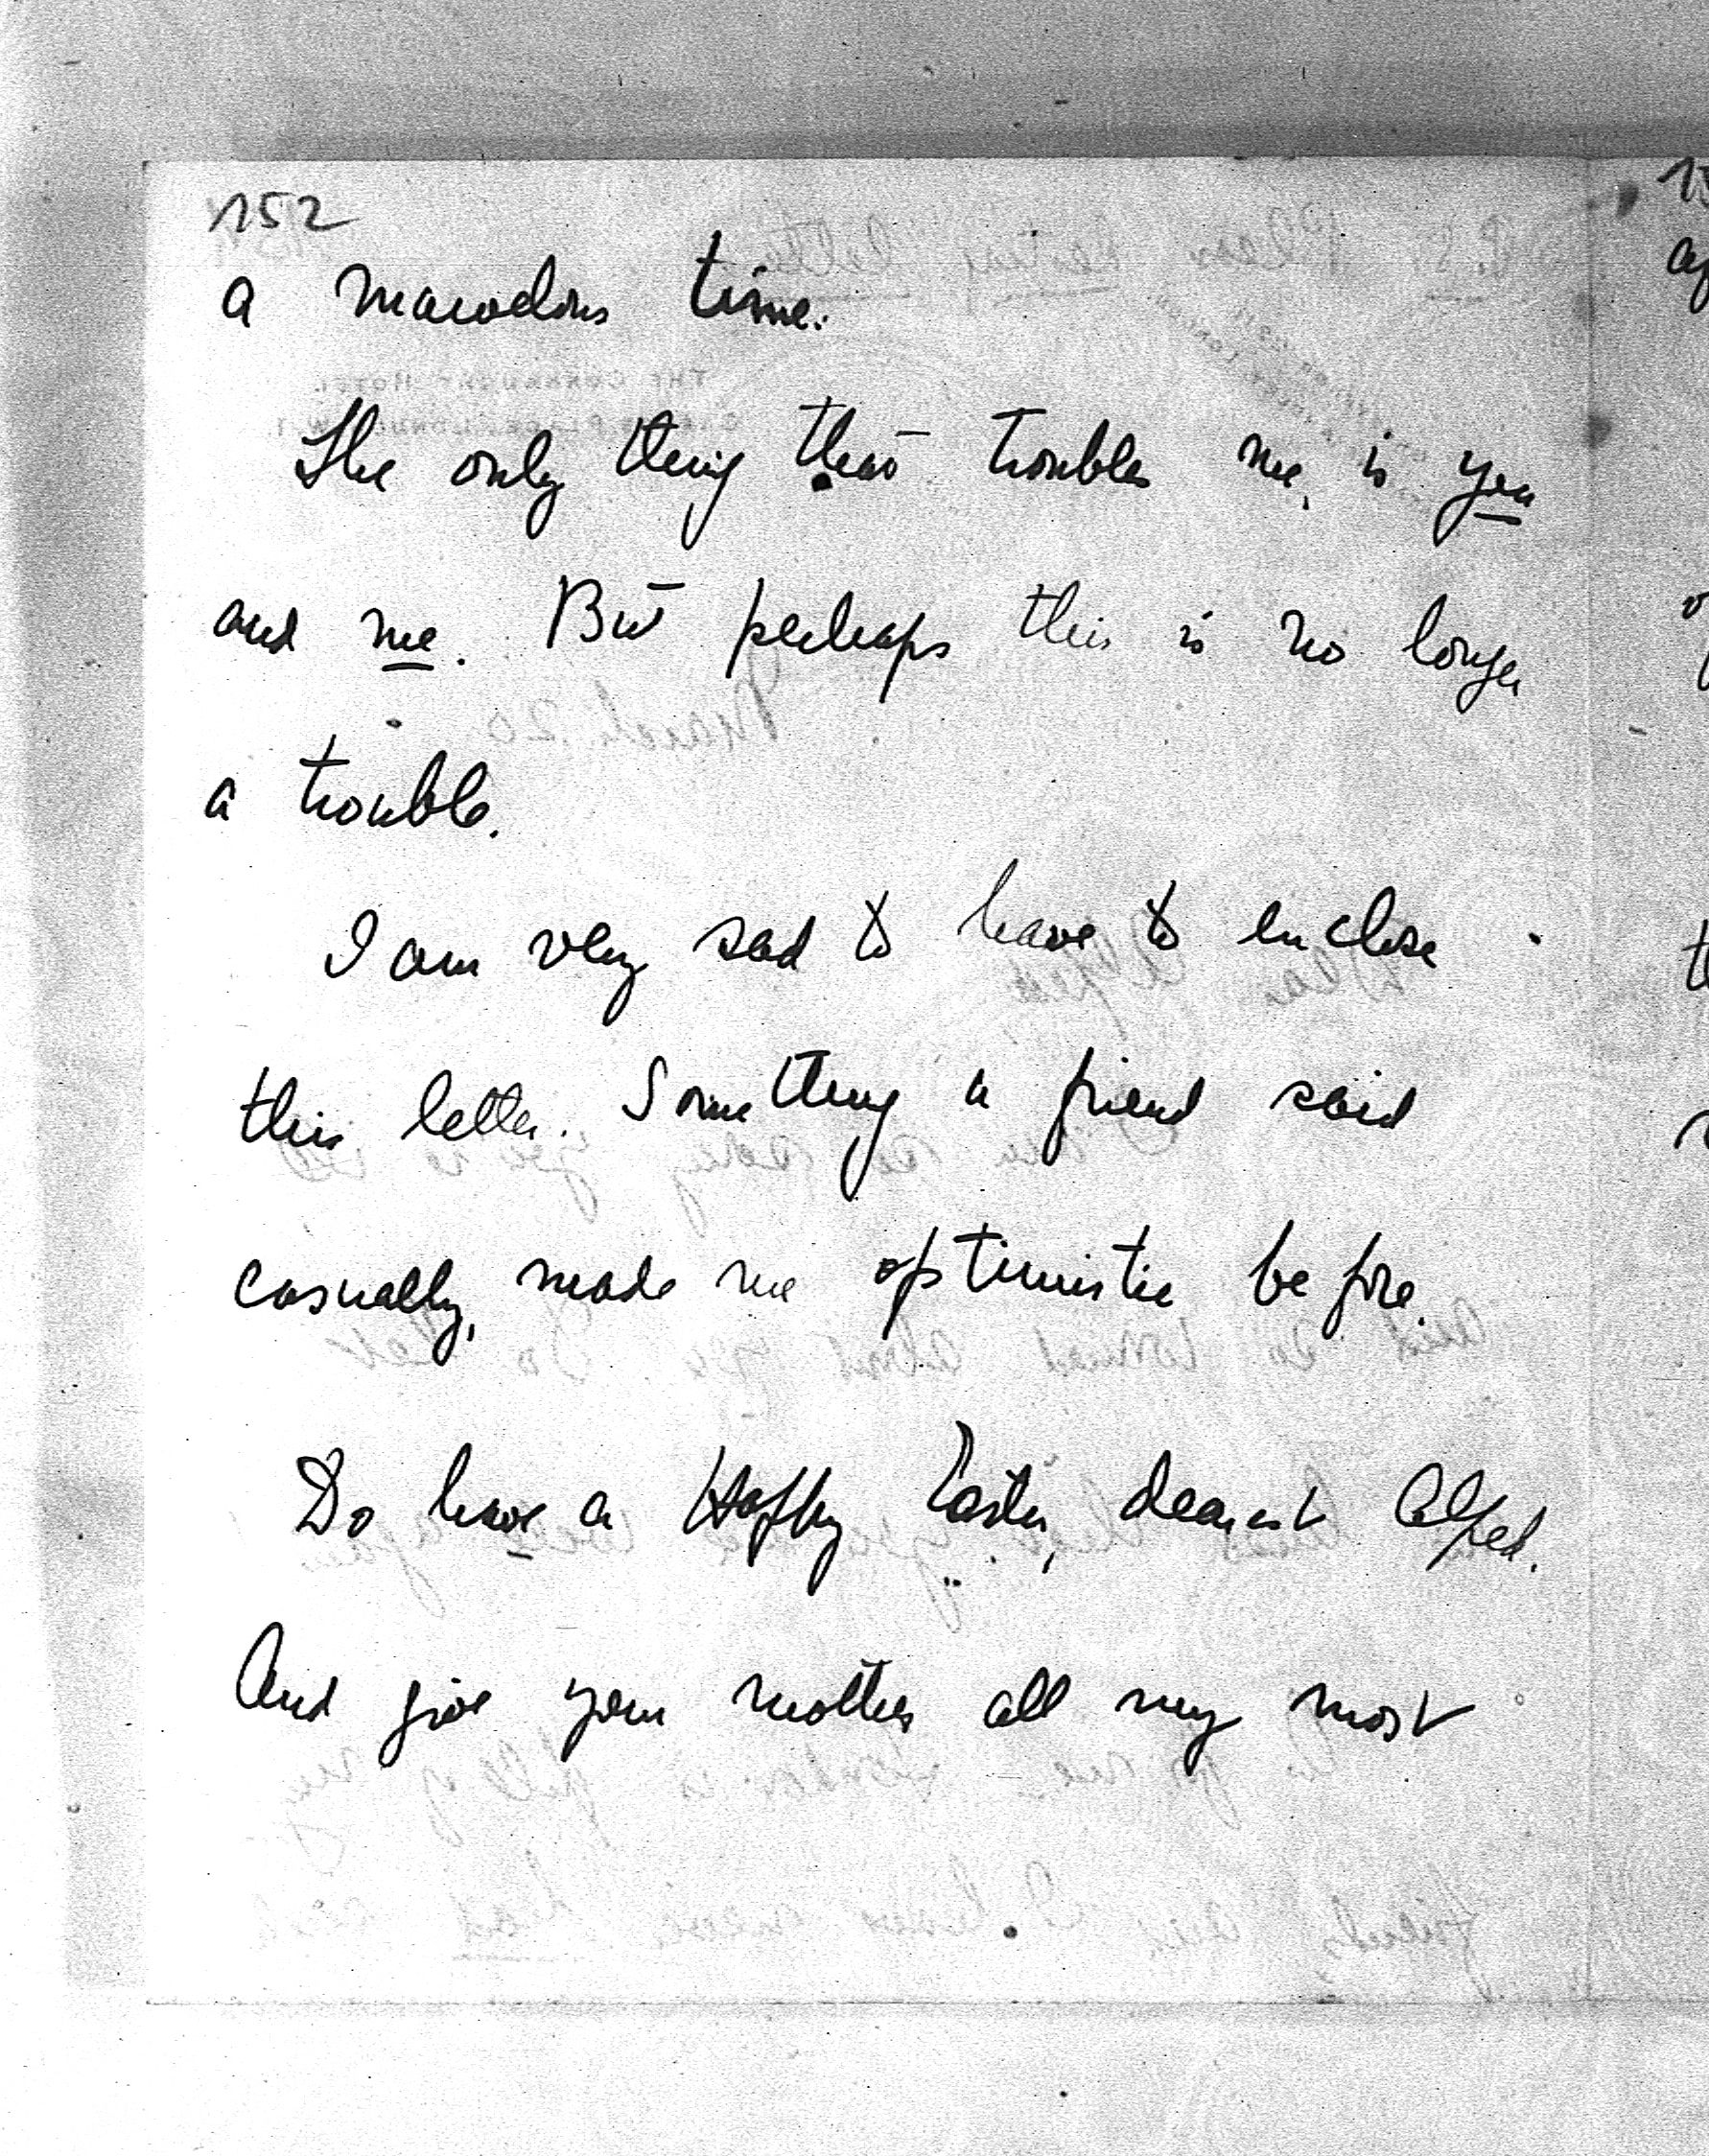 152
a marvelous time.
The only thing that troubles me, is you
and me. But perhaps this is no longer
a trouble.
I am very sad to have to enclose
this letter. Something a friend said
casually, made me optimistic before.
Do have a Happy Easter, dearest Alfred.
And give your mother all my most